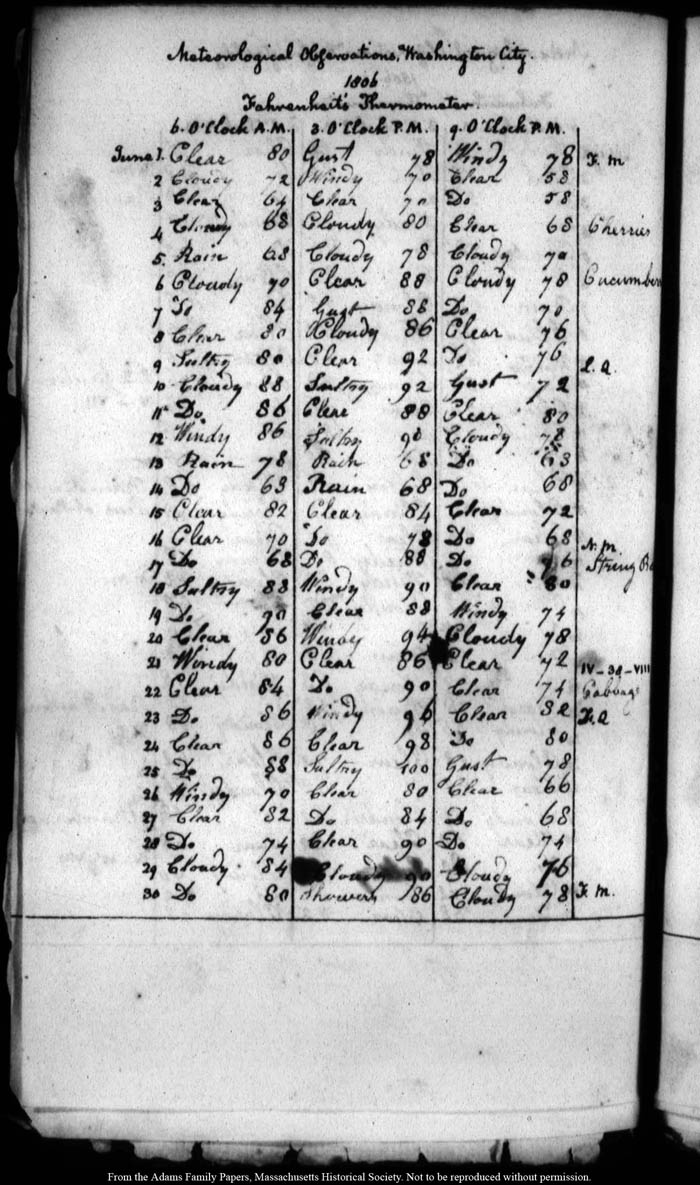 Meteorological Observations, Washington City.
1806
Fahrenheit's Thermometer.
6. O'Clock A.M. 3. O'Clock P.M. 9. O'Clock P.M.
June 1. Clear 80 Gust 78 Windy 78 F. M
2 Cloudy 72 Windy 70 Clear 58
3 Clear 64 Clear 70 Do 58
4 Cloudy 68 Cloudy 80 Clear 68 Cherries
5. Rain 68 Cloudy 78 Cloudy 70
6 Cloudy 70 Clear 88 Cloudy 78 Cucumbers
7 Do 84 Gust 88 Do 70
8 Clear 80 Cloudy 86 Clear 76
9 Sultry 80 Clear 92 Do 76 L. Q.
10 Cloudy 88 Sultry 92 Gust 72
11 Do 86 Clear 88 Clear 80
12 Windy 86 Sultry 90 Cloudy 78
13 Rain 78 Rain 68 Do 63
14 Do 63 Rain 68 Do 68
15 Clear 82 Clear 84 Clear 72
16 Clear 70 Do 78 Do 68 N. M.
17 Do 68 Do 88 Do 76 String
18 Sultry 88 Windy 90 Clear 80
19 Do 90 Clear 88 Windy 74
20 Clear 86 Windy 94 Cloudy 78
21 Windy 80 Clear 86 Clear 72 IV-38-VIII
22 Clear 84 Do 90 Clear 74 Cabbage
23 Do 86 Windy 96 Clear 82 F. Q
24 Clear 86 Clear 98 Do 80
25 Do 88 Sultry 100 Gust 78
26 Windy 70 Clear 80 Clear 66
27 Clear 82 Do 84 Do 68
28 Do 74 Clear 90 Do 74
29 Cloudy 84 Cloudy 90 Cloudy 76
30 Do 80 Showers 86 Cloudy 78 F. M.
From the Adams Family Papers, Massachusetts Historical Society. Not to be reproduced without permission.